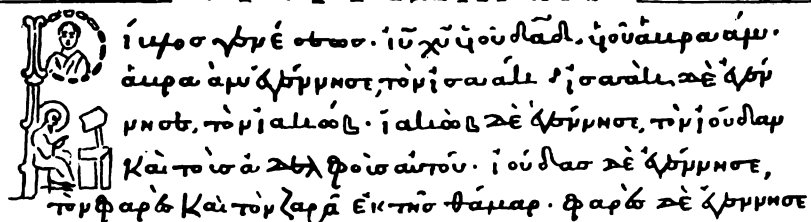 Βίβλος γενέσεως· ἰ̅υ̅ χ̅υ̅ ὑοῦ δ̅α̅δ̅, ὑοῦ ἀβραάμ·
ἀβραὰμ ἐγέννησε, τὸν ἰσαάκ· ἰσαὰκ δὲ ἐγέν
νησε, τὸν ἰακώβ· ἰακὼβ δὲ ἐγέννησε, τὸν ἰούδαν
καὶ τοὺς ἀδελφοὺς αὐτοῦ· ἰούδας δὲ ἐγέννησε,
τὸν φαρὲς καὶ τὸν ζαρὰ ἐκ τῆς θάμαρ· φαρὲς δὲ ἐγέννησε